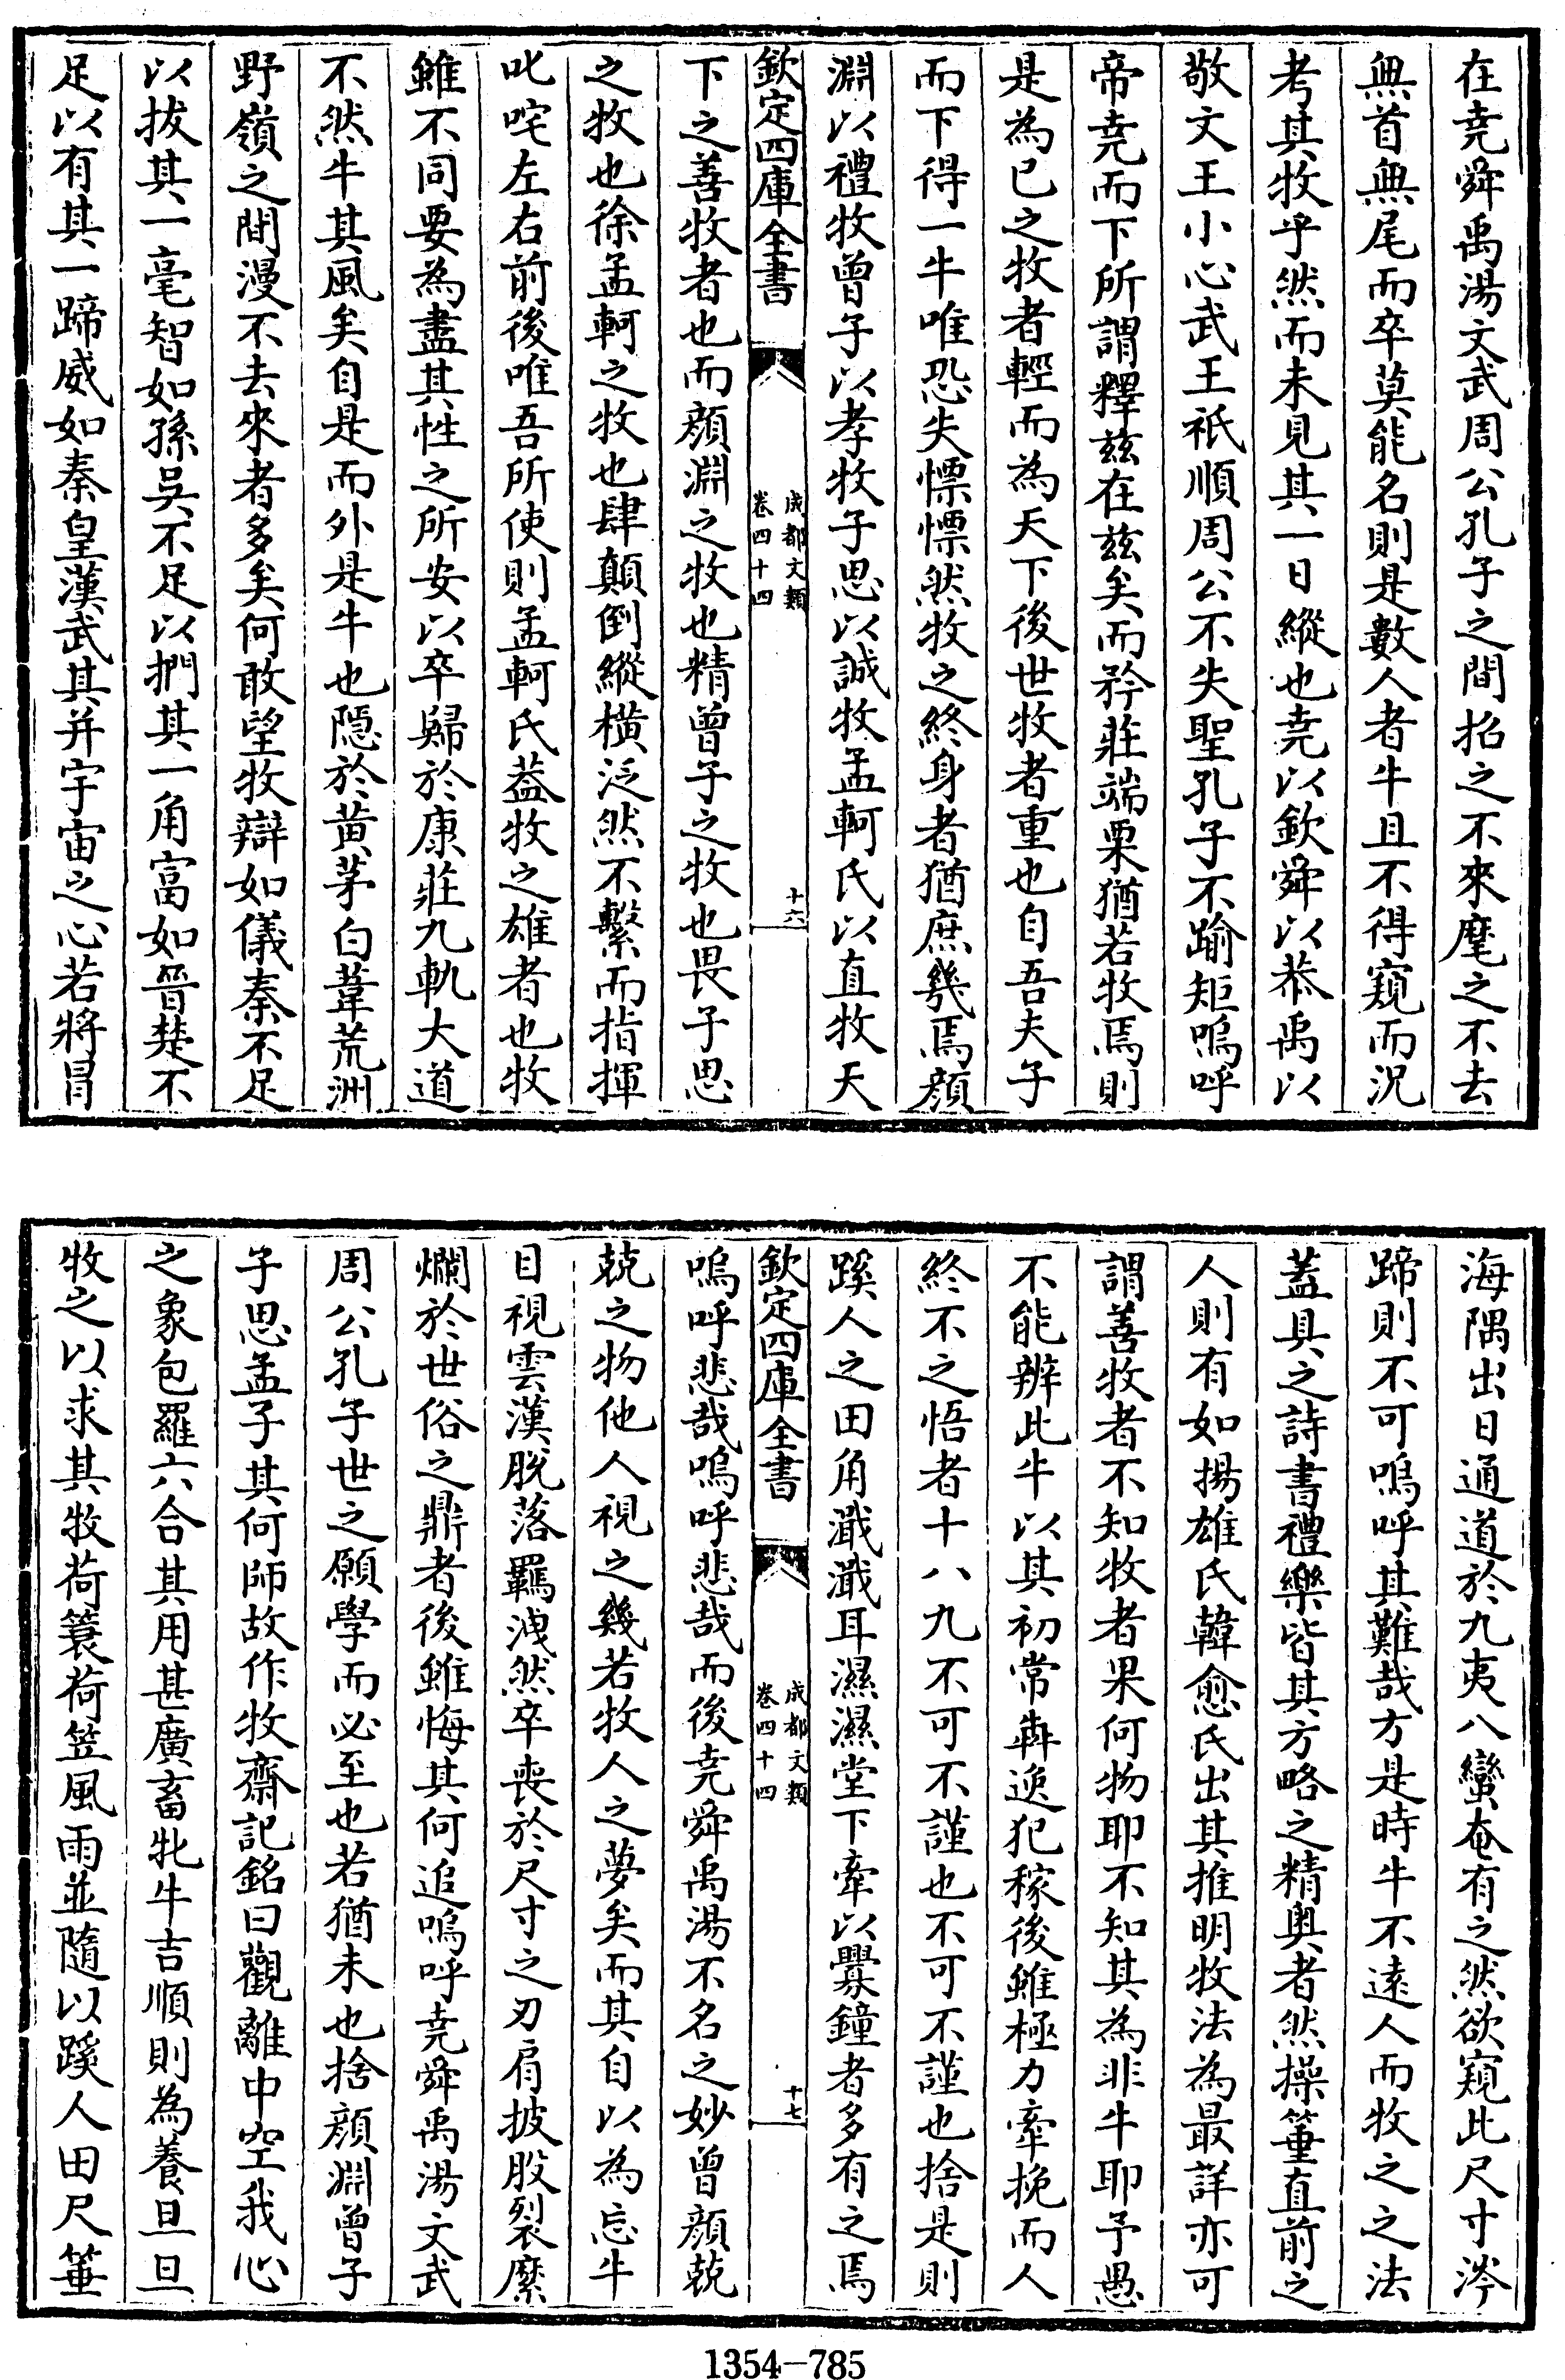 在堯舜禹湯文武周公孔子之間招之不來麾之不去
無首無尾而卒莫能名則是數人者牛且不得窺而況
考其牧乎然而未見其一日縱也堯以欽舜以恭禹以
敬文王小心武王祇順周公不失聖孔子不踰矩嗚呼
帝堯而下所謂釋兹在兹矣而矜莊端栗猶若牧焉則
是為已之牧者輕而為天下後世牧者重也自吾夫子
而下得一牛唯恐失慄慄然牧之終身者猶庶幾焉顔
淵以禮牧曾子以孝牧子思以誠牧孟軻氏以直牧天
欽定四庫全書
成都文類
卷四十四
十六
下之善牧者也而顔淵之牧也精曾子之牧也畏子思
之牧也徐孟軻之牧也肆顛倒縱橫泛然不繫而指揮
叱咤左右前後唯吾所使則孟軻氏葢牧之雄者也牧
雖不同要為盡其性之所安以卒歸於康莊九軌大道
不然牛其風矣自是而外是牛也隱於黄茅白葦荒洲
野嶺之間漫不去來者多矣何敢望牧辯如儀秦不足
以拔其一毫智如孫吳不足以捫其一角富如晉楚不
足以有其一蹄威如秦皇漢武其并宇宙之心若將冒
海隅出日通道於九夷八蠻奄有之然欲窺此尺寸涔
蹄則不可嗚呼其難哉方是時牛不遠人而牧之之法
蓋具之詩書禮樂皆其方略之精奥者然操箠直前之
人則有如揚雄氏韓愈氏出其推明牧法為最詳亦可
謂善牧者不知牧者果何物耶不知其為非牛耶予愚
不能辨此牛以其初常犇逸犯稼後雖極力牽挽而人
終不之悟者十八九不可不謹也不可不謹也捨是則
蹊人之田角濈濈耳濕濕堂下牽以釁鐘者多有之焉
欽定四庫全書
成都文類
卷四十四
十七
嗚呼悲哉嗚呼悲哉而後堯舜禹湯不名之妙曾顔兢
兢之物他人視之幾若牧人之夢矣而其自以為忘牛
目視雲漢脫落羈洩然卒喪於尺寸之刃肩披股裂糜
爛於世俗之鼎者後雖悔其何追嗚呼堯舜禹湯文武
周公孔子世之願學而必至也若猶未也捨顔淵曾子
子思孟子其何師故作牧齋記銘曰觀離中空我心
之象包羅六合其用甚廣畜牝牛吉順則為養旦旦
牧之以求其牧荷簑荷笠風雨並隨以蹊人田尺箠
1354-785